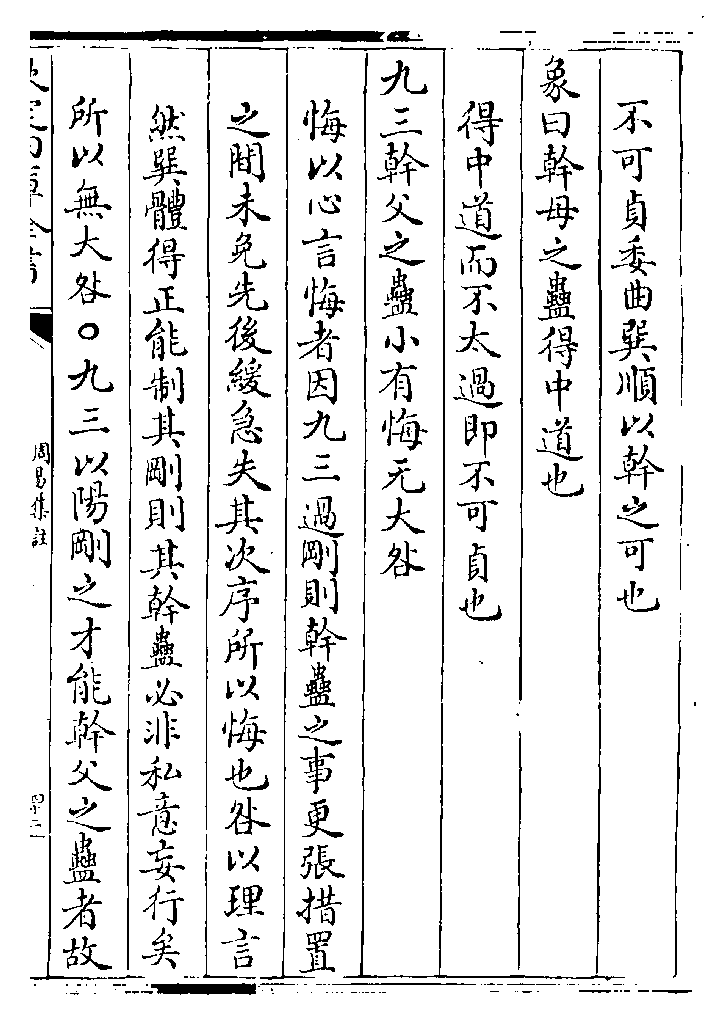 不可貞委曲巽順以幹之可也
象曰幹母之蠱得中道也
得中道而不太過即不可貞也
九三幹父之蠱小有悔无大咎
悔以心言悔者因九三過剛則幹蠱之事更張措置
之間未免先後緩急失其次序所以悔也咎以理言
然巽體得正能制其剛則其幹蠱必非私意妄行矣
所以無大咎○九三以陽剛之才能幹父之蠱者故
周易集註